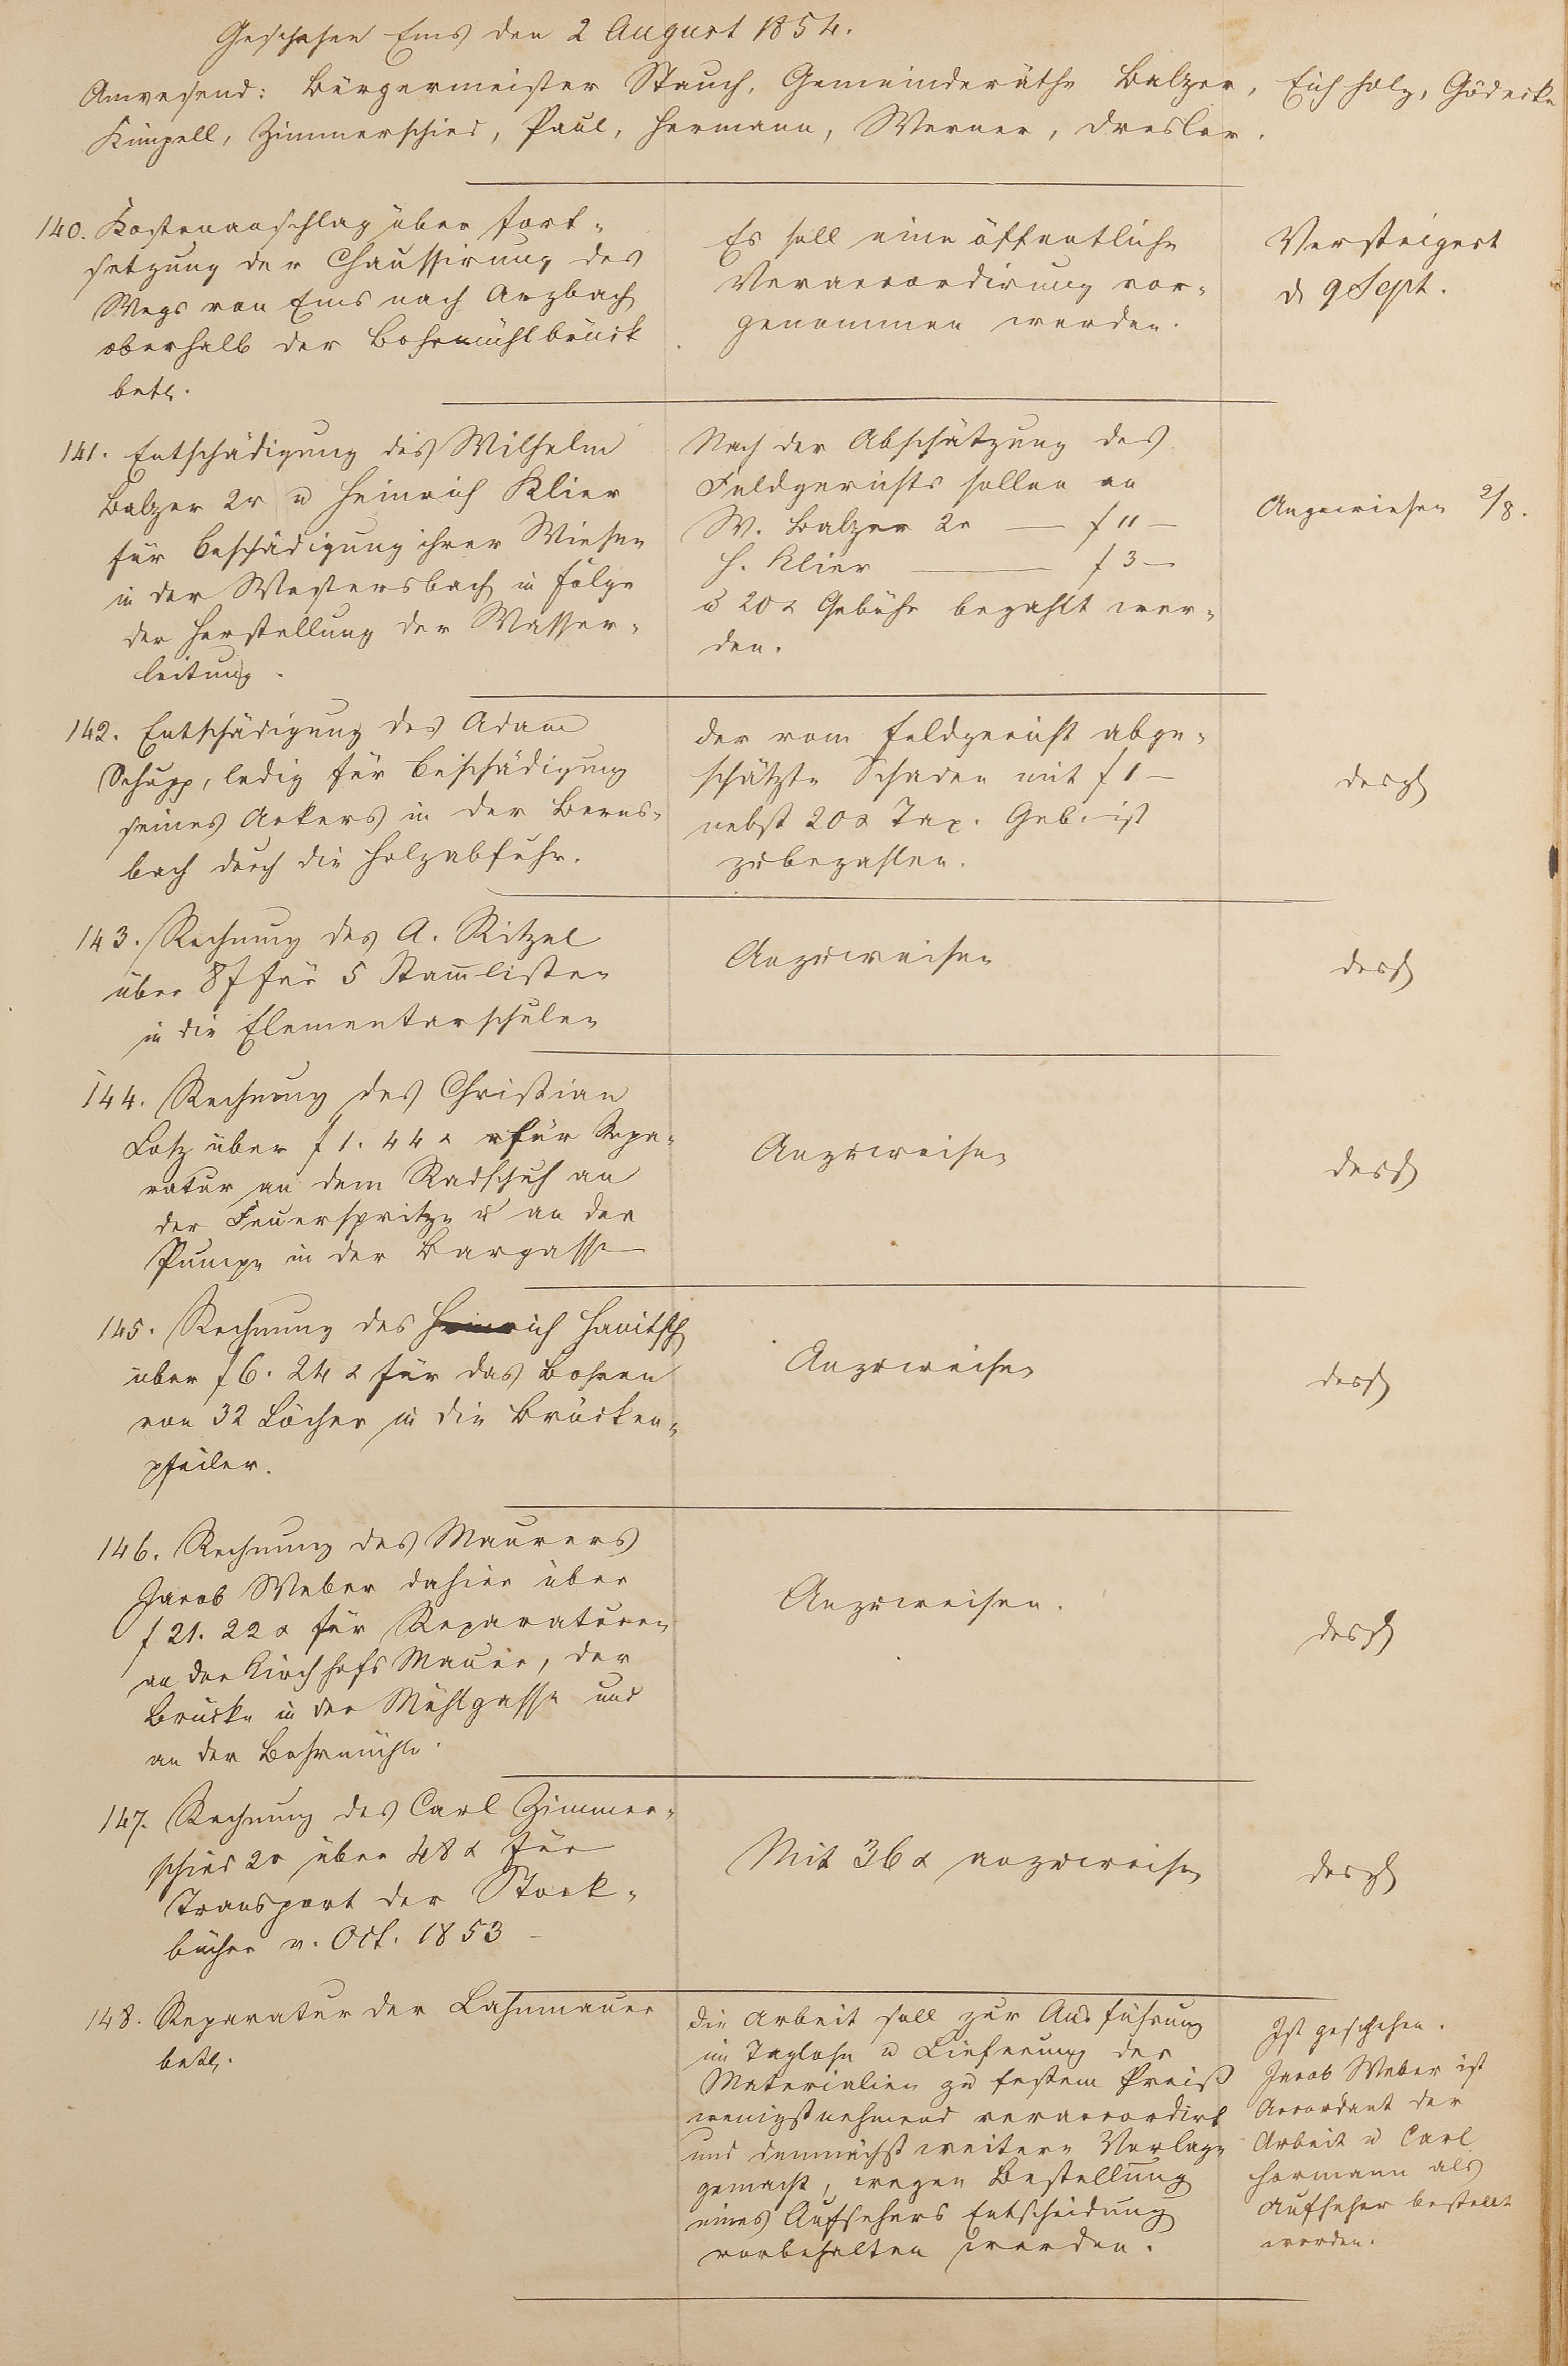 Geschehen Ems den 2 August 1854.
Anwesend: Bürgermeister Stauch, Gemeinderäthe Balzer, Eichholz, Gödecke
Kimpell, Zimmerschied, Paul, Hermann, Werner, Dresler.
140. Kostenanschlag über Fort-
setzung der Chaussirung des
Wegs von Ems nach Arzbach
oberhalb der Bohrmühlbrück
betr.
Es soll eine öffentliche
Veraccordirung vor-
genommen werden.
Versteigert
d 9 Sept.
141. Entschädigung des Wilhelm
Balzer 2r u Heinrich Klier
für Beschädigung ihrer Wiesen
in der Westersbach in Folge
der Herstellung der Wasser-
leitung.
Nach der Abschätzung des
Feldgerichts sollen an
W. Balzer 2r — f 11 —
H. Klier — f 3 —
u 20 x Gebühr bezahlt wer-
den.
Angewiesen 2/8.
142. Entschädigung des Adam
Schupp, ledig für Beschädigung
seines Ackers in der Berns-
bach durch die Holzabfuhr.
der vom Feldgericht abge-
schätzte Schaden mit f 1 —
nebst 20 x Tax. Geb. ist
zu bezahlen.
desgl
143. Rechnung des A. Ritzel
über 8 f für 5 Stam̄listen
in die Elementarschulen
Anzuweisen
desgl
144. Rechnung des Christian
Lotz über f 1. 44 x für Repa-
ratur an dem Radschuh an
der Feuerspritze u an der
Pumpe in der Bargasse
Anzuweisen
desgl
145. Rechnung des Heinrich Hanitsch
über f 6. 24 x für das Bohren
von 32 Löcher in die Brücken-
pfeiler.
Anzuweisen
desgl
146. Rechnung des Maurers
Jacob Weber dahier über
f 21. 22 x für Reparaturen
an der Kirchhofs Mauer, der
Brücke in der Mühlgasse und
an der Bohrmühle.
Anzuweisen.
desgl
147. Rechnung des Carl Zimmer-
schied 2r über 48 x für
Transport der Stock-
bücher v. Oct. 1853
Mit 36 x anzuweisen
desgl
148. Reparatur der Lahnmauer
betr.
die Arbeit soll zur Ausführung
im Taglohn u Lieferung der
Materialien zu festem Preiß
wenigstnehmend veraccordirt
und demnächst weitere Vorlage
gemacht, wegen Bestellung
eines Aufsehers Entscheidung
vorbehalten werden.
Ist geschehen.
Jacob Weber ist
Accordant der
Arbeit u Carl
Hermann als
Aufseher bestellt
worden.